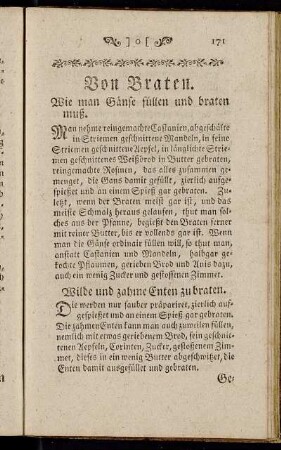 ] o [ 171
Von Braten.
Wie man Gänse füllen und braten
muß.
Man nehme reingemachte Castanien, abgeschälte
in Striemen geschnittene Mandeln, in feine
Striemen geschnittene Aepfel, in länglichte Strie-
men geschnittenes Weißbrod in Butter gebraten,
reingemachte Rosinen, das alles zusammen ge-
menget, die Gans damit gefüllt, zierlich aufge-
spießet und an einem Spieß gar gebraten. Zu-
letzt, wenn der Braten meist gar ist, und das
meiste Schmalz heraus gelaufen, thut man sol-
ches aus der Pfanne, begießet den Braten ferner
mit reiner Butter, bis er vollends gar ist. Wenn
man die Gänse ordinair füllen will, so thut man,
anstatt Castanien und Mandeln, halbgar ge-
kochte Pflaumen, gerieben Brod und Anis dazu,
auch ein wenig Zucker und gestossenen Zimmet.
Wilde und zahme Enten zu braten.
Die werden nur sauber präpariret, zierlich auf-
gespießet und an einem Spieß gar gebraten.
Die zahmen Enten kann man auch zuweilen füllen,
nemlich mit etwas geriebenem Brod, fein geschnit-
tenen Aepfeln, Corinten, Zucker, gestoßenem Zim-
met, dieses in ein wenig Butter abgeschwitzet, die
Enten damit ausgefüllet und gebraten.
Ge-